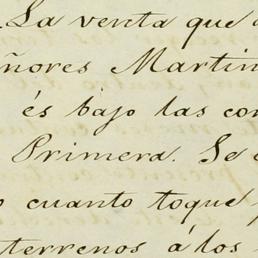 La venta que
ñores Martin
és bajo las con
Primera. Se
cuanto toque
terrenos á los